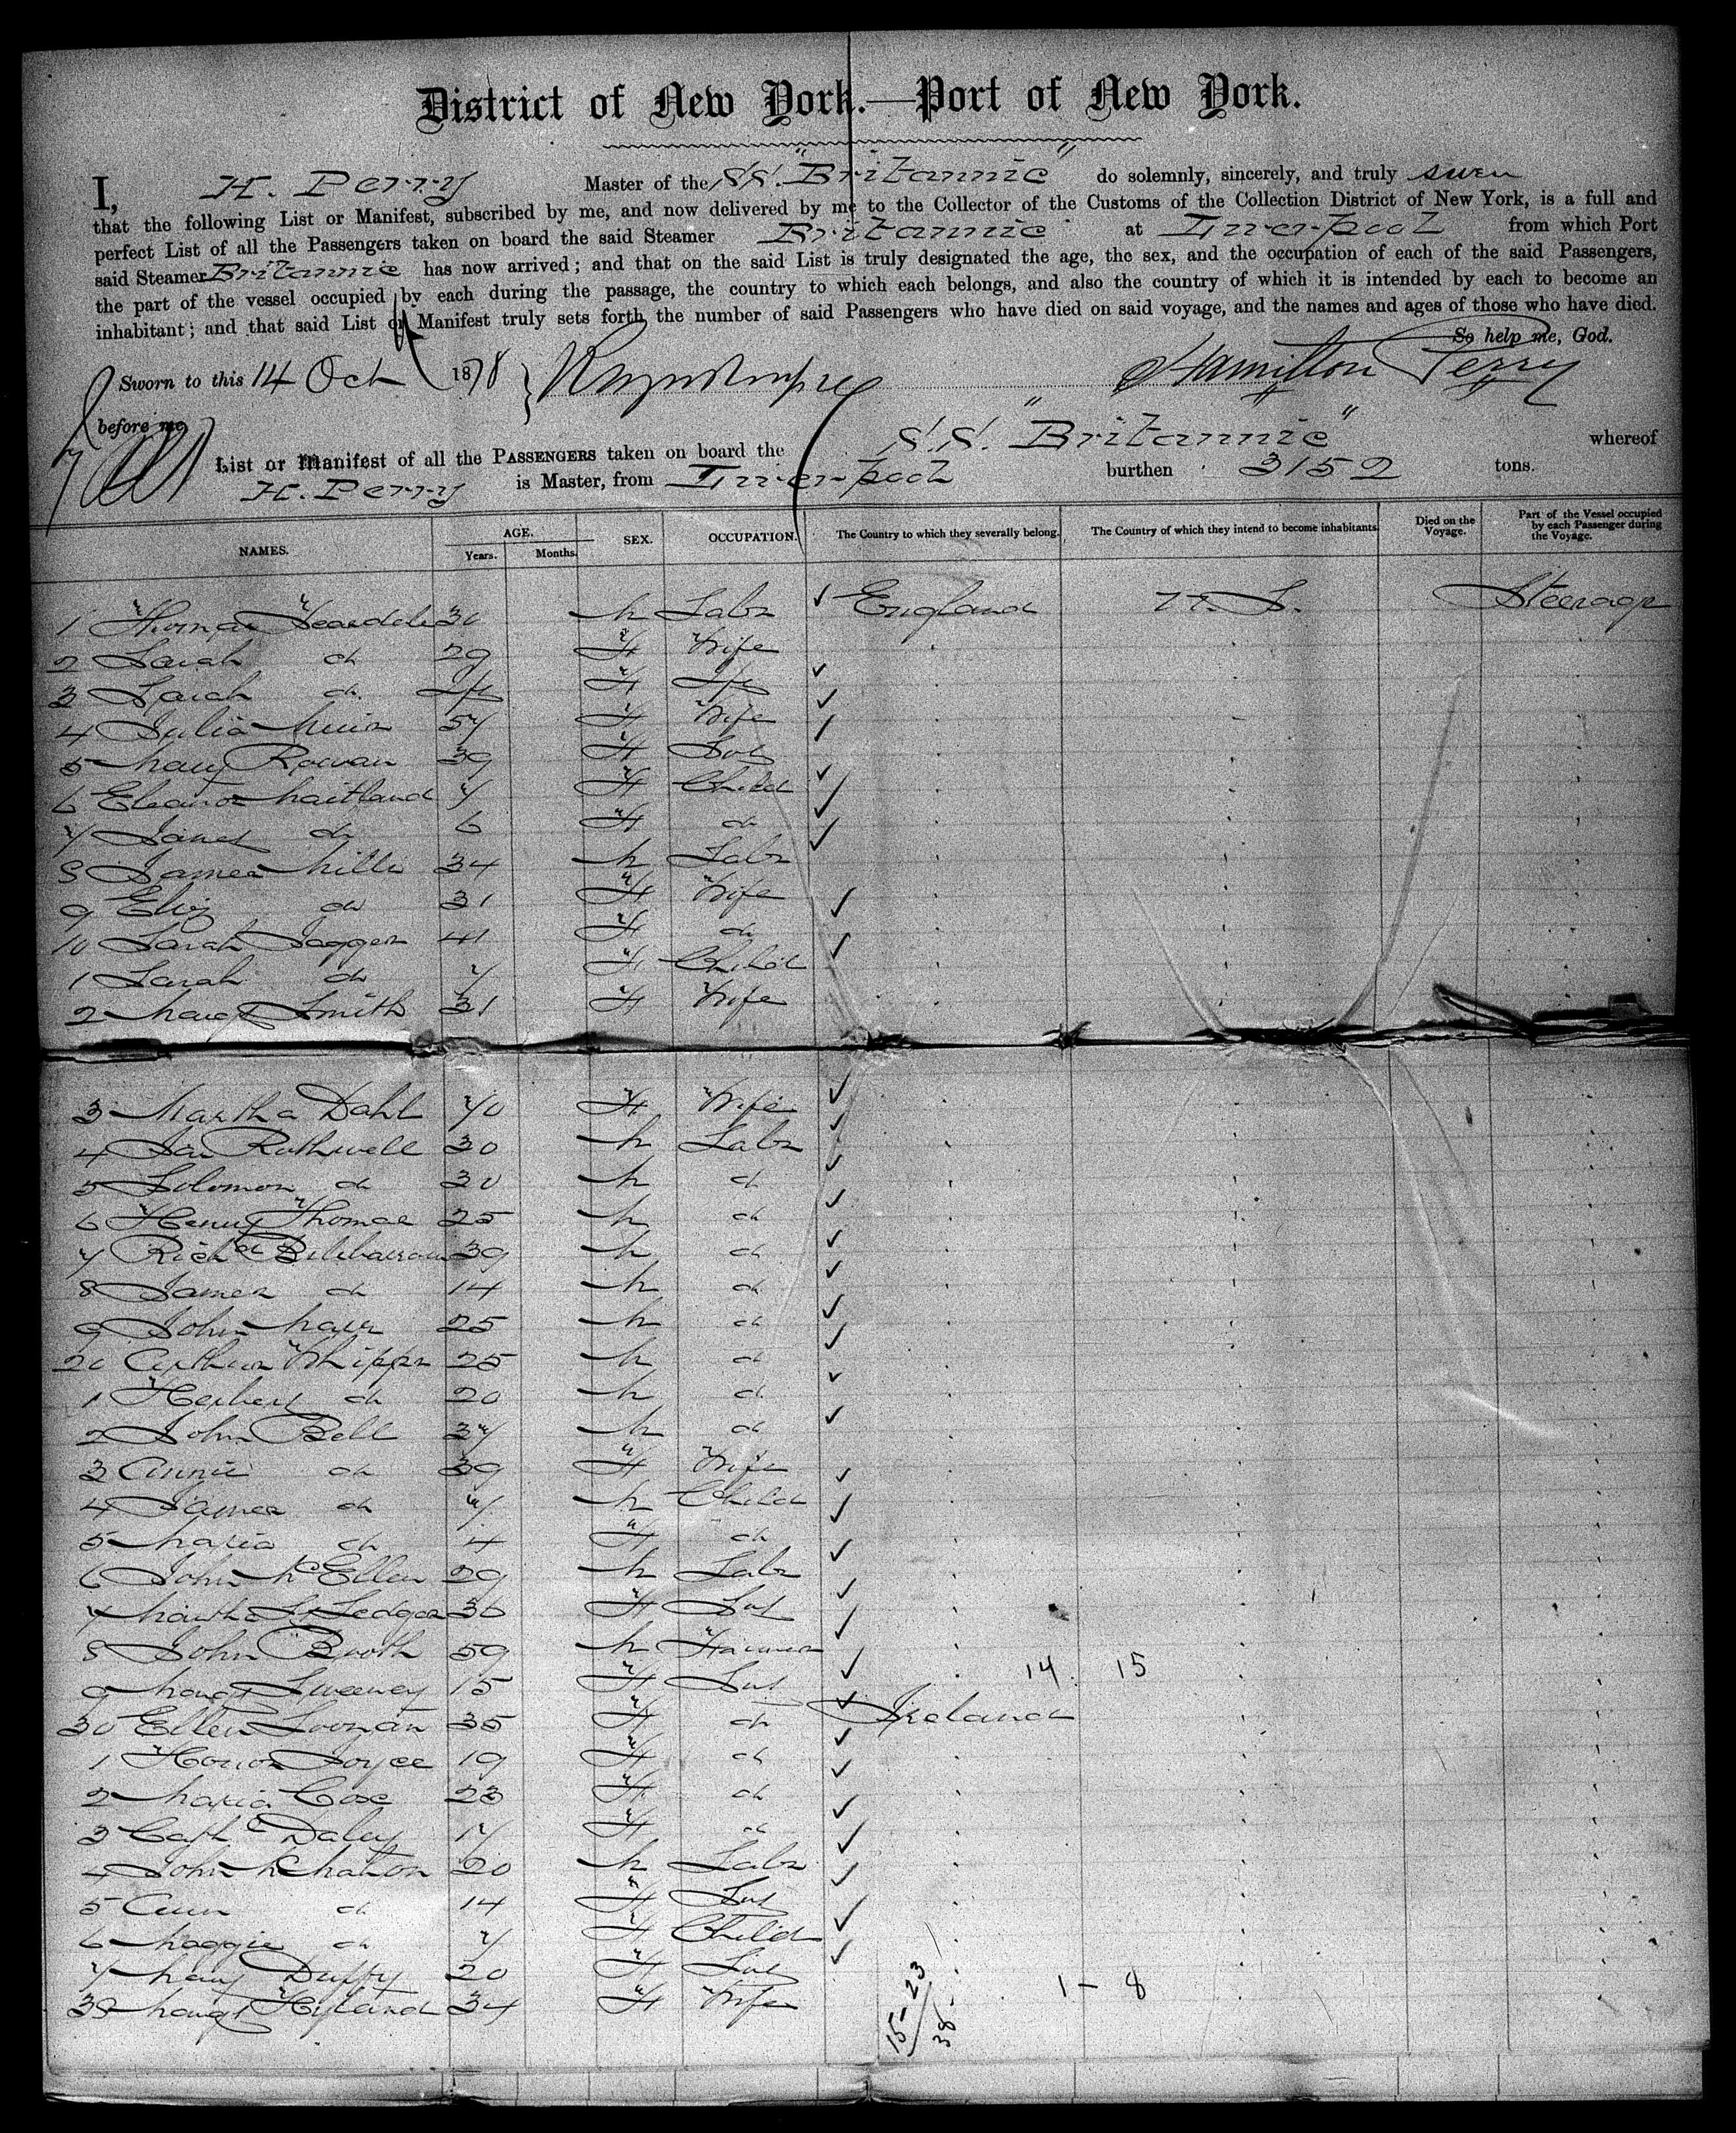 District of New York.—Port of New York.
I, H. Perry Master of the S.S. "Britannic" do solemnly, sincerely, and truly swear
that the following List or Manifest, subscribed by me, and now delivered by me to the Collector of the Customs of the Collection District of New York, is a full and
perfect List of all the Passengers taken on board the said Steamer Britannic at Liverpool from which Port
said Steamer Britannic has now arrived; and that on the said List is truly designated the age, the sex, and the occupation of each of the said Passengers,
the part of the vessel occupied by each during the passage, the country to which each belongs, and also the country of which it is intended by each to become an
inhabitant; and that said List or Manifest truly sets forth the number of said Passengers who have died on said voyage, and the names and ages of those who have died.
So help me, God.
Sworn to this 14 Oct 1878 Hamilton Perry
before me
List or Manifest of all the PASSENGERS taken on board the S.S. "Britannic" whereof
H. Perry is Master, from Liverpool burthen 3152 tons.
NAMES. AGE. Years. Months. SEX. OCCUPATION. The Country to which they severally belong. The Country of which they intend to become inhabitants. Died on the Voyage. Part of the Vessel occupied by each Passenger during the Voyage.
1 Thomas 30 M Labr England U.S. Steerage
2 Sarah do 29 F Wife
3 Sarah do F
4 Julia Muir 57 F Wife
5 Mary Rowan 39 F
6 Eleanor Maitland 7 F Child
7 Janet do 6 F do
8 James Mills 34 M Labr
9 Eliz do 31 F Wife
10 Sarah Jagger 41 F do
1 Sarah do 7 F Child
2 Margt Smith 31 F Wife
3 Martha Dahl 70 F Wife
4 Jas Rothwell 30 M Labr
5 Solomon do 30 M do
6 Henry Thomas 25 M do
7 Richd 39 M do
8 James do 14 M do
9 John 25 M do
20 Arthur Whipps 25 M do
1 Herbert do 20 M do
2 John Bell 37 M do
3 Annie do 39 F Wife
4 James do 7 M Child
5 Maria do 4 F do
6 John McEllen 29 M Labr
7 Martha St Ledger 36 F Svt
8 John Booth 59 M Farmer
9 Margt Sweeney 15 F Svt 14 15
30 Ellen Noonan 35 F do Ireland
1 Honor Joyce 19 F do
2 Maria Cox 23 F do
3 Cathe Daley 17 F do
4 John McMahon 20 M Labr
5 Ann do 14 F Svt
6 Maggie do 7 F Child
7 Mary Duffy 20 F Svt
38 Margt Hyland 34 F Wife 1 - 8
15-23
38